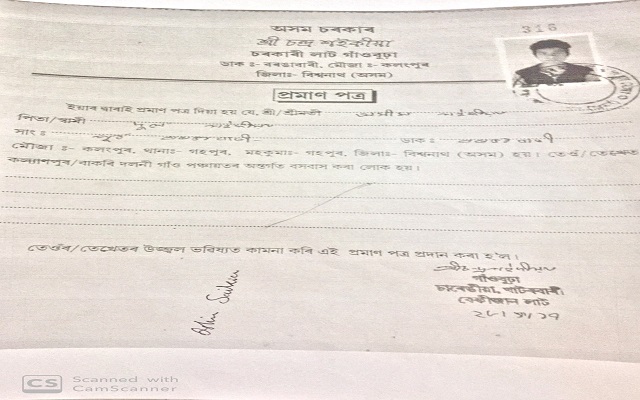 অসম চৰকাৰ
শ্ৰী চন্দ্ৰ শইকীয়া
চৰকাৰী লাট গাঁওবুঢ়া
ডাক ঃ- বৰঙাবাৰী, মৌজা ঃ- কলংপুৰ
জিলাঃ- বিশ্বনাথ (অসম)
316
প্ৰমাণ পত্ৰ
ইয়াৰ দ্বাৰাই প্ৰমাণ পত্ৰ দিয়া হয় যে, শ্ৰী/ শ্ৰীমতী
পিতা/স্বামী
সাং ঃ ডাক ঃ
মৌজা ঃ- কলংপুৰ, থানাঃ- গহপুৰ, মহকুমাঃ- গহপুৰ, জিলাঃ- বিশ্বনাথ (অসম) হয়। তেওঁ/তেখেত
কল্যাণপুৰ/বাকৰি দলনী গাঁও পঞ্চায়তৰ অন্তৰ্গত বসবাস কৰা লোক হয়।
তেওঁৰ/তেখেতৰ উজ্জ্বল ভৱিষ্যত কামনা কৰি এই প্ৰমাণ পত্ৰ প্ৰদান কৰা হ'ল।
গাঁওবুঢ়া
লাট
Saikia
CS Scanned with
CamScanner